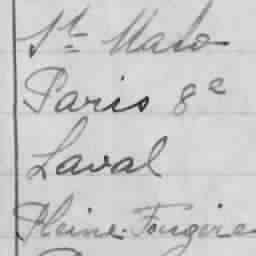 St Malo
Paris 8e
Laval
Pleine-Fougère